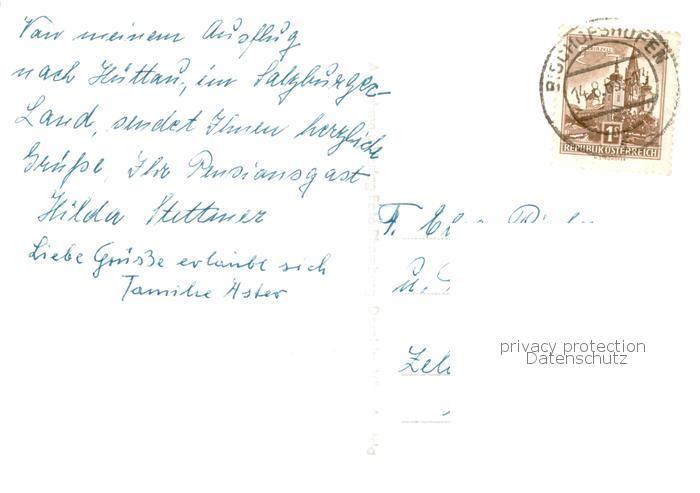 Von meinem Ausflug
nach Hüttau, im Salzburger-
Land, sendet Ihnen herzliche
Grüße, Ihr Pensionsgast
Hilda Stettmer
Liebe Grüsse erlaubt sich
Familie Aster
BISCHOFSHOFEN
14.8.65
1S
REPUBLIK ÖSTERREICH
F.
u.
privacy protection
Datenschutz